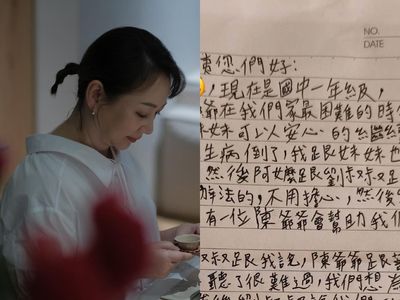 NO.
DATE
您們好：
，現在是國中一年級，
爺在我們家最困難的時
妹可以安心的繼續
生病倒了，我跟妹妹也
然後阿嬤跟劉叔叔足
辦法的，不用擔心，然後
有一位陳爺爺會幫助我們
叔叔跟我說，陳爺爺是
聽了很難過，我們想為